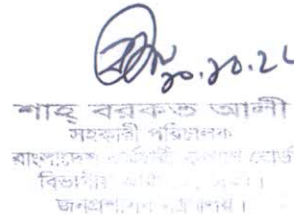 ১০.১০.২৮
শাহ্ বরকত আলী
সহকারী পরিচালক
বাংলাদেশ কর্মচারী কল্যাণ বোর্ড
বিভাগীয়
জনপ্রশাসন মন্ত্রণালয়।